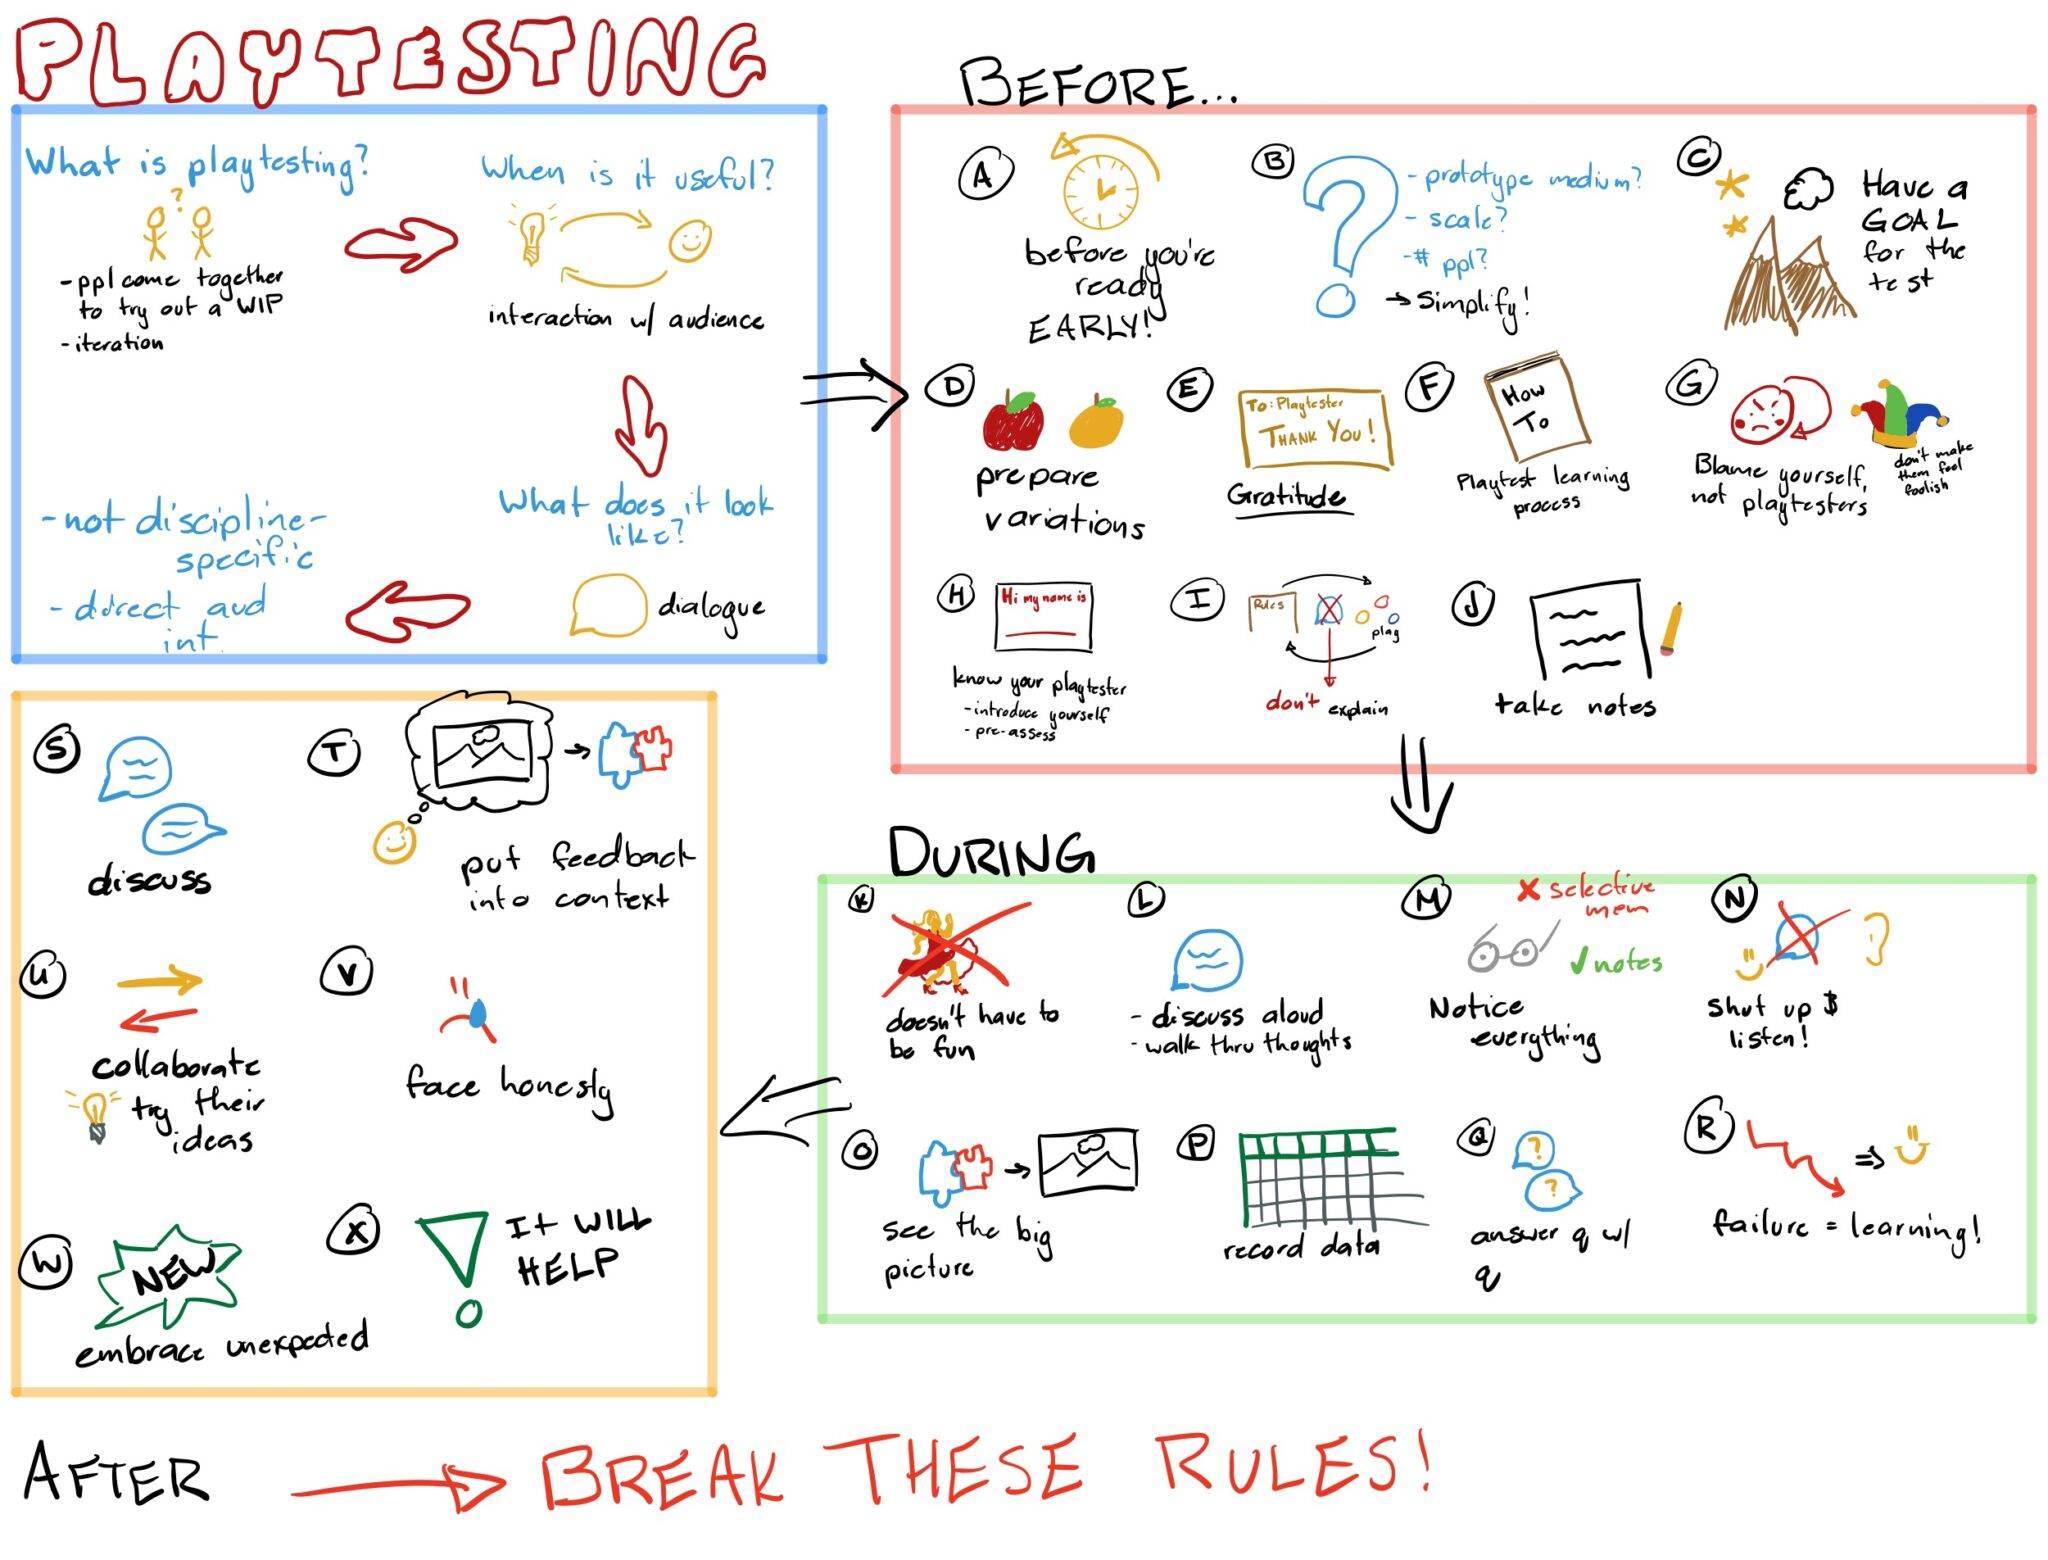 PLAYTESTING
What is playtesting?
?
-ppl come together
to try out a WIP
-iteration
When is it useful?
interaction w/ audience
What does it look
like?
dialogue
-not discipline-
specific
- direct and
int.
BEFORE...
A
before you're
ready
EARLY!
B
?
- prototype medium?
- scale?
-# ppl?
→ Simplify!
C
HAVE a
GOAL
for the
test
D
prepare
variations
E
To: Playtester
THANK YOU!
Gratitude
F
How
To
Playtest learning
process
G
Blame yourself,
not playtesters
don't make
them feel
foolish
H
Hi my name is
know your playtester
- introduce yourself
- pre-assess
I
Rules
play
don't explain
J
take notes
DURING
K
doesn't have to
be fun
L
- discuss aloud
- walk thru thoughts
M
x selective
mem
✓notes
Notice
everything
N
Shut up $
listen!
O
see the big
picture
P
record data
Q
?
?
answer q w/
q
R
⇒
failure = learning!
S
discuss
T
put feedback
into context
U
collaborate
try their
ideas
V
face honesly
W
NEW
embrace unexpected
X
IT WILL
HELP
AFTER
BREAK THESE RULES!